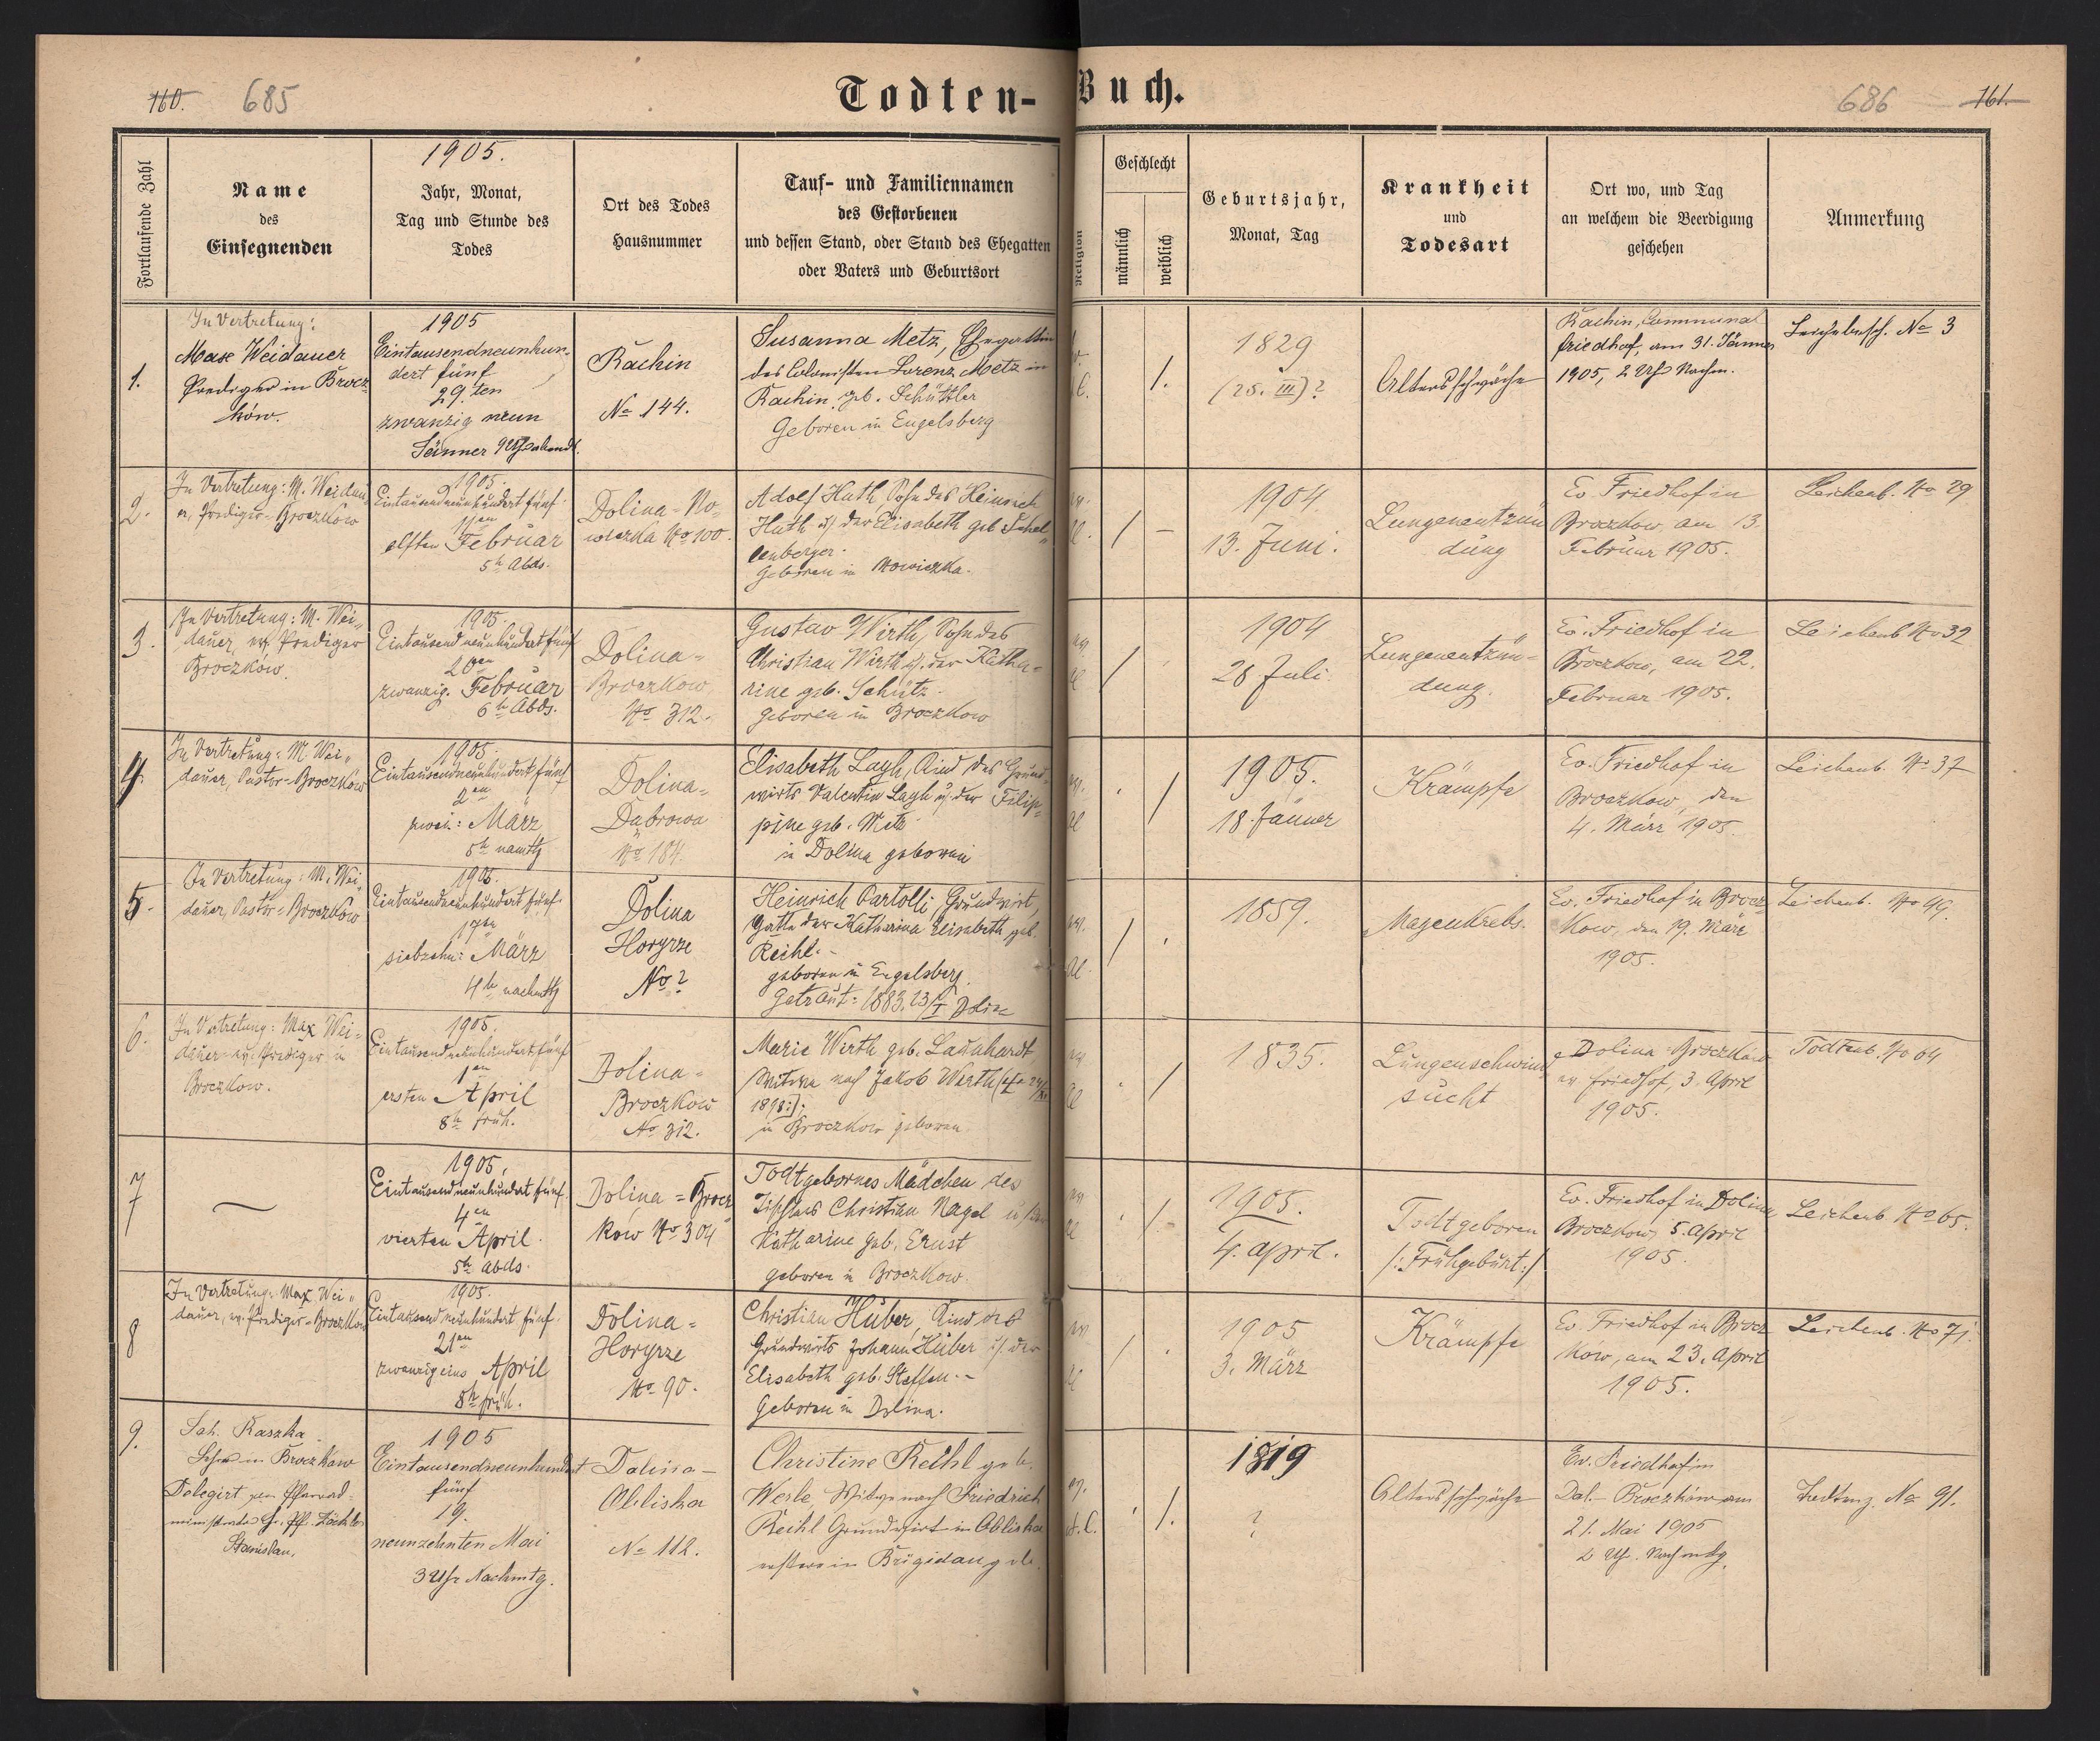 160. 685
Todten-Buch.
686 161.
1905.
Fortlaufende Zahl
Name
des
Einsegnenden
Jahr, Monat,
Tag und Stunde des
Todes
Ort des Todes
Hausnummer
Tauf- und Familiennamen
des Gestorbenen
und dessen Stand, oder Stand des Ehegatten
oder Vaters und Geburtsort
Religion
Geschlecht
männlich
weiblich
Geburtsjahr,
Monat, Tag
Krankheit
und
Todesart
Ort wo, und Tag
an welchem die Beerdigung
geschehen
Anmerkung
1.
In Vertretung:
Max Weidauer
Prediger in Brocz
ków.
1905
Eintausendneunhun-
dert fünf
29. ten
zwanzig neun
Jänner 9 Uhr abends.
Rachin
No 144.
Susanna Metz, Ehegattin
des Colonisten Lorenz Metz in
Rachin, geb. Schüttler
Geboren in Engelsberg
1.
1829
(25. III)?
Altersschwäche
Rachin, Communal
friedhof, am 31. Jänner
1905, 2 Uhr Nachm.
Leichenbesch. No 3
2.
In Vertretung: M. Weidau
er, Prediger-Broczkow
1905.
Eintausendneunhundert fünf.
11en
elften Februar
5h Abds.
Dolina-No-
wiczka No 100.
Adolf Huth, Sohn des Heinrich
Huth u. der Elisabeth geb. Schel-
lenberger.
Geboren in Nowiczka.
/ –
1904.
13. Juni.
Lungenentzün
dung
Ev. Friedhof in
Broczkow, am 13.
Februar 1905.
Leichenb. No 29
3.
In Vertretung: M. Wei-
dauer, ev. Prediger
Broczków.
1905.
Eintausend neunhundert fünf
20en
zwanzig. Februar
6h Abds.
Dolina-
Broczkow
No 312.
Gustav Wirth, Sohn des
Christian Wirth u. der Katha-
rine geb. Schütz.
geboren in Broczkow
/
1904
28 Juli.
Lungenentzün-
dung.
Ev. Friedhof in
Broczkow, am 22.
Februar 1905.
Leichenb No 32
4.
In Vertretung: M. Wei-
dauer, Pastor-Broczków
1905.
Eintausendneunhundert fünf
2en
zwei: März
5h namttg
Dolina-
Dabrowa
No 184.
Elisabeth Layh, Kind des Grund-
wirts Valentin Layh u. der Filip-
pine geb. Metz
in Dolina geboren
/
1905.
18. Jänner
Krämpfe
Ev. Friedhof in
Broczkow, den
4. März 1905.
Leichenb. No 37
5.
In Vertretung: M. Wei-
dauer, Pastor-Broczków
1905.
Eintausendneunhundert fünf.
17en
siebzehn: März
4h nachmttg
Dolina
Horyrze
No ?
Heinrich Bartolli, Grundwirt,
Gatte der Katharina Elisabeth geb.
Reihl.-
geboren in Engelsberg.
Getraut: 1883.
/
1859.
Magenkrebs.
Ev. Friedhof in Brocz
kow, den 19. März
1905.
Leichenb. No 49.
6.
In Vertretung: Max Wei-
dauer ev. Prediger in
Broczkow.
1905.
Eintausendneunhundert fünf
1en
ersten April
8h früh.
Dolina-
Broczkow
No 312.
Marie Wirth geb. Launhardt
Witwe nach Jakob Wirth
1898:);
in Broczkow geboren.
/
1835.
Lungenschwind
sucht
Dolina-Broczków
ev. Friedhof, 3. April
1905.
Todtenb. No 64
7
1905.
Eintausend neunhundert fünf.
4en
vierten April.
5h Abds.
Dolina-Brocz
kow No 304
Todtgebornes Mädchen des
Tischlers Christian Nagel u.
Katharine geb. Ernst
geboren in Broczkow.
/.
1905.
4. April.
Todtgeboren
/:Frühgeburt:/
Ev. Friedhof in Dolina
Broczkow, 5. April
1905.
Leichenb. No 65.
8
In Vertretung: Max Wei-
dauer, ev. Prediger-Broczkow
1905.
Eintausend neunhundert fünf.
21en
zwanzigeins April
8h früh.
Dolina-
Horyrze
No 90.
Christian Huber, Kind des
Grundwirts Johann Huber u. der
Elisabeth geb. Steffen.-
Geboren in Dolina.
/
1905
3. März
Krämpfe
Ev. Friedhof in Brocz
kow, am 23. April
1905.
Leichenb. No 71.
9.
Joh. Raszka
Lehrer in Broczków
Delegirt
Stanislau.
1905
Eintausendneunhundert
fünf
19.
neunzehnten Mai
3 Uhr Nachmtg.
Dolina-
Obliska
No 112.
Christine Reihl geb.
Werle, Witwe nach Friedrich
Reihl Grundwirt in Obliska
erstere in Brigidau geb.
/.
1819
?
Altersschwäche
Ev. Friedhof in
Dol.- Broczków am
21. Mai 1905
2 Uhr. Nachmtg.
No 91.